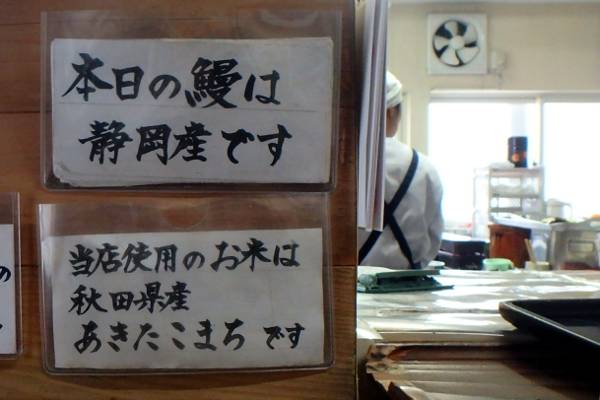 本日の鰻は
静岡産です
当店使用のお米は
秋田県産
あきたこまちです
の